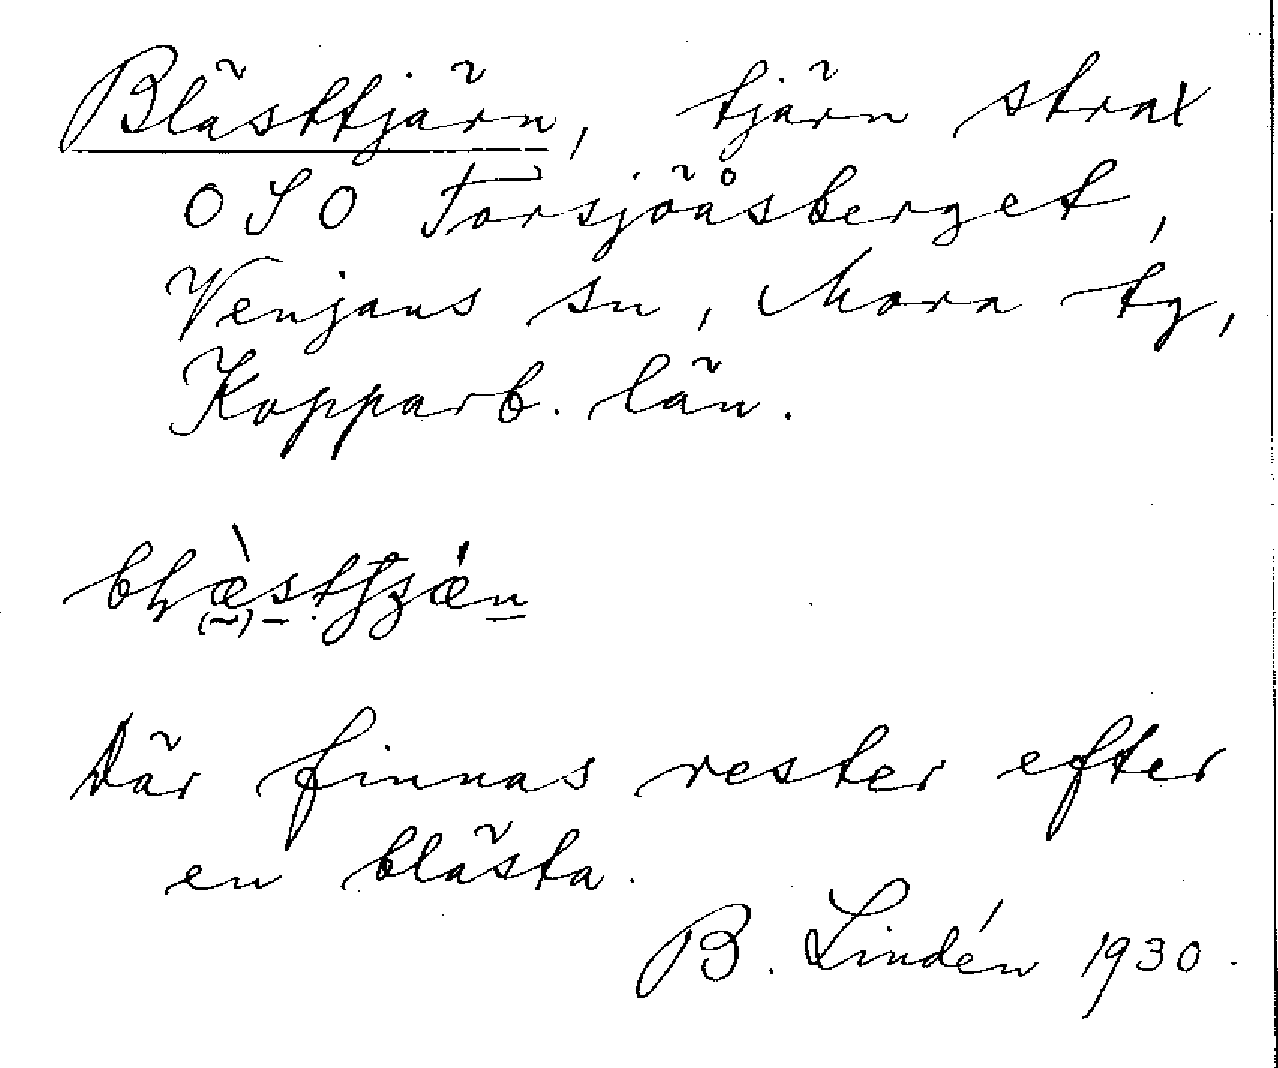 Blästtjärn, tjärn strax
OSO Torsjöåsberget,
Venjans sn, Mora tg,
Kopparb. län.
Där finnas rester efter
en blästa.
B. Lindén 1930.